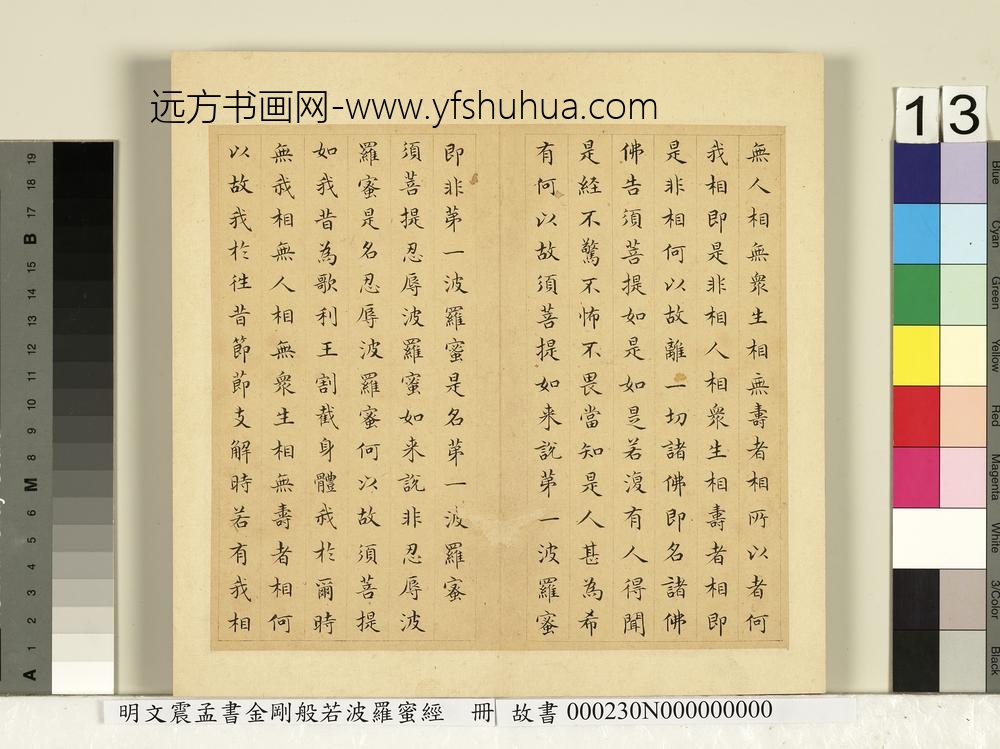 远方书画网-www.yfshuhua.com
無人相無衆生相無壽者相所以者何
我相即是非相人相衆生相壽者相即
是非相何以故離一切諸佛即名諸佛
佛告須菩提如是如是若復有人得聞
是経不驚不怖不畏當知是人甚為希
有何以故須菩提如来說第一波羅蜜
即非第一波羅蜜是名第一波羅蜜
須菩提忍辱波羅蜜如来說非忍辱波
羅蜜是名忍辱波羅蜜何以故須菩提
如我昔為歌利王割截身體我於爾時
無我相無人相無衆生相無壽者相何
以故我於往昔節節支解時若有我相
明文震孟書金剛般若波羅蜜經 冊 故書 000230N000000000
13
Blue
Cyan
Green
Yellow
Red
Magenta
White
3/Color
Black
A 1 2 3 4 5 6 M 8 9 10 11 12 13 14 15 B 17 18 19